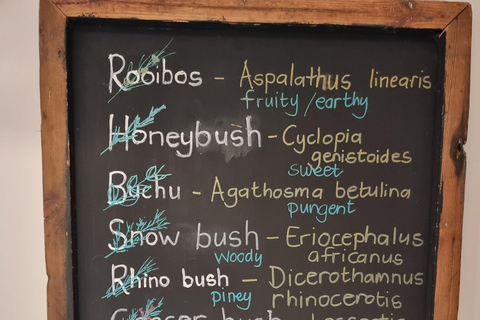 Rooibos - Aspalathus linearis
fruity/earthy
Honeybush - Cyclopia
genistoides
sweet
Buchu - Agathosma betulina
pungent
Snow bush - Eriocephalus
woody africanus
Rhino bush - Dicerothamnus
piney rhinocerotis